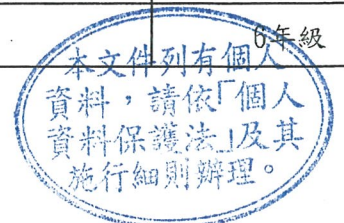 6年級
本文件列有個人
資料，請依「個人
資料保護法」及其
施行細則辦理。